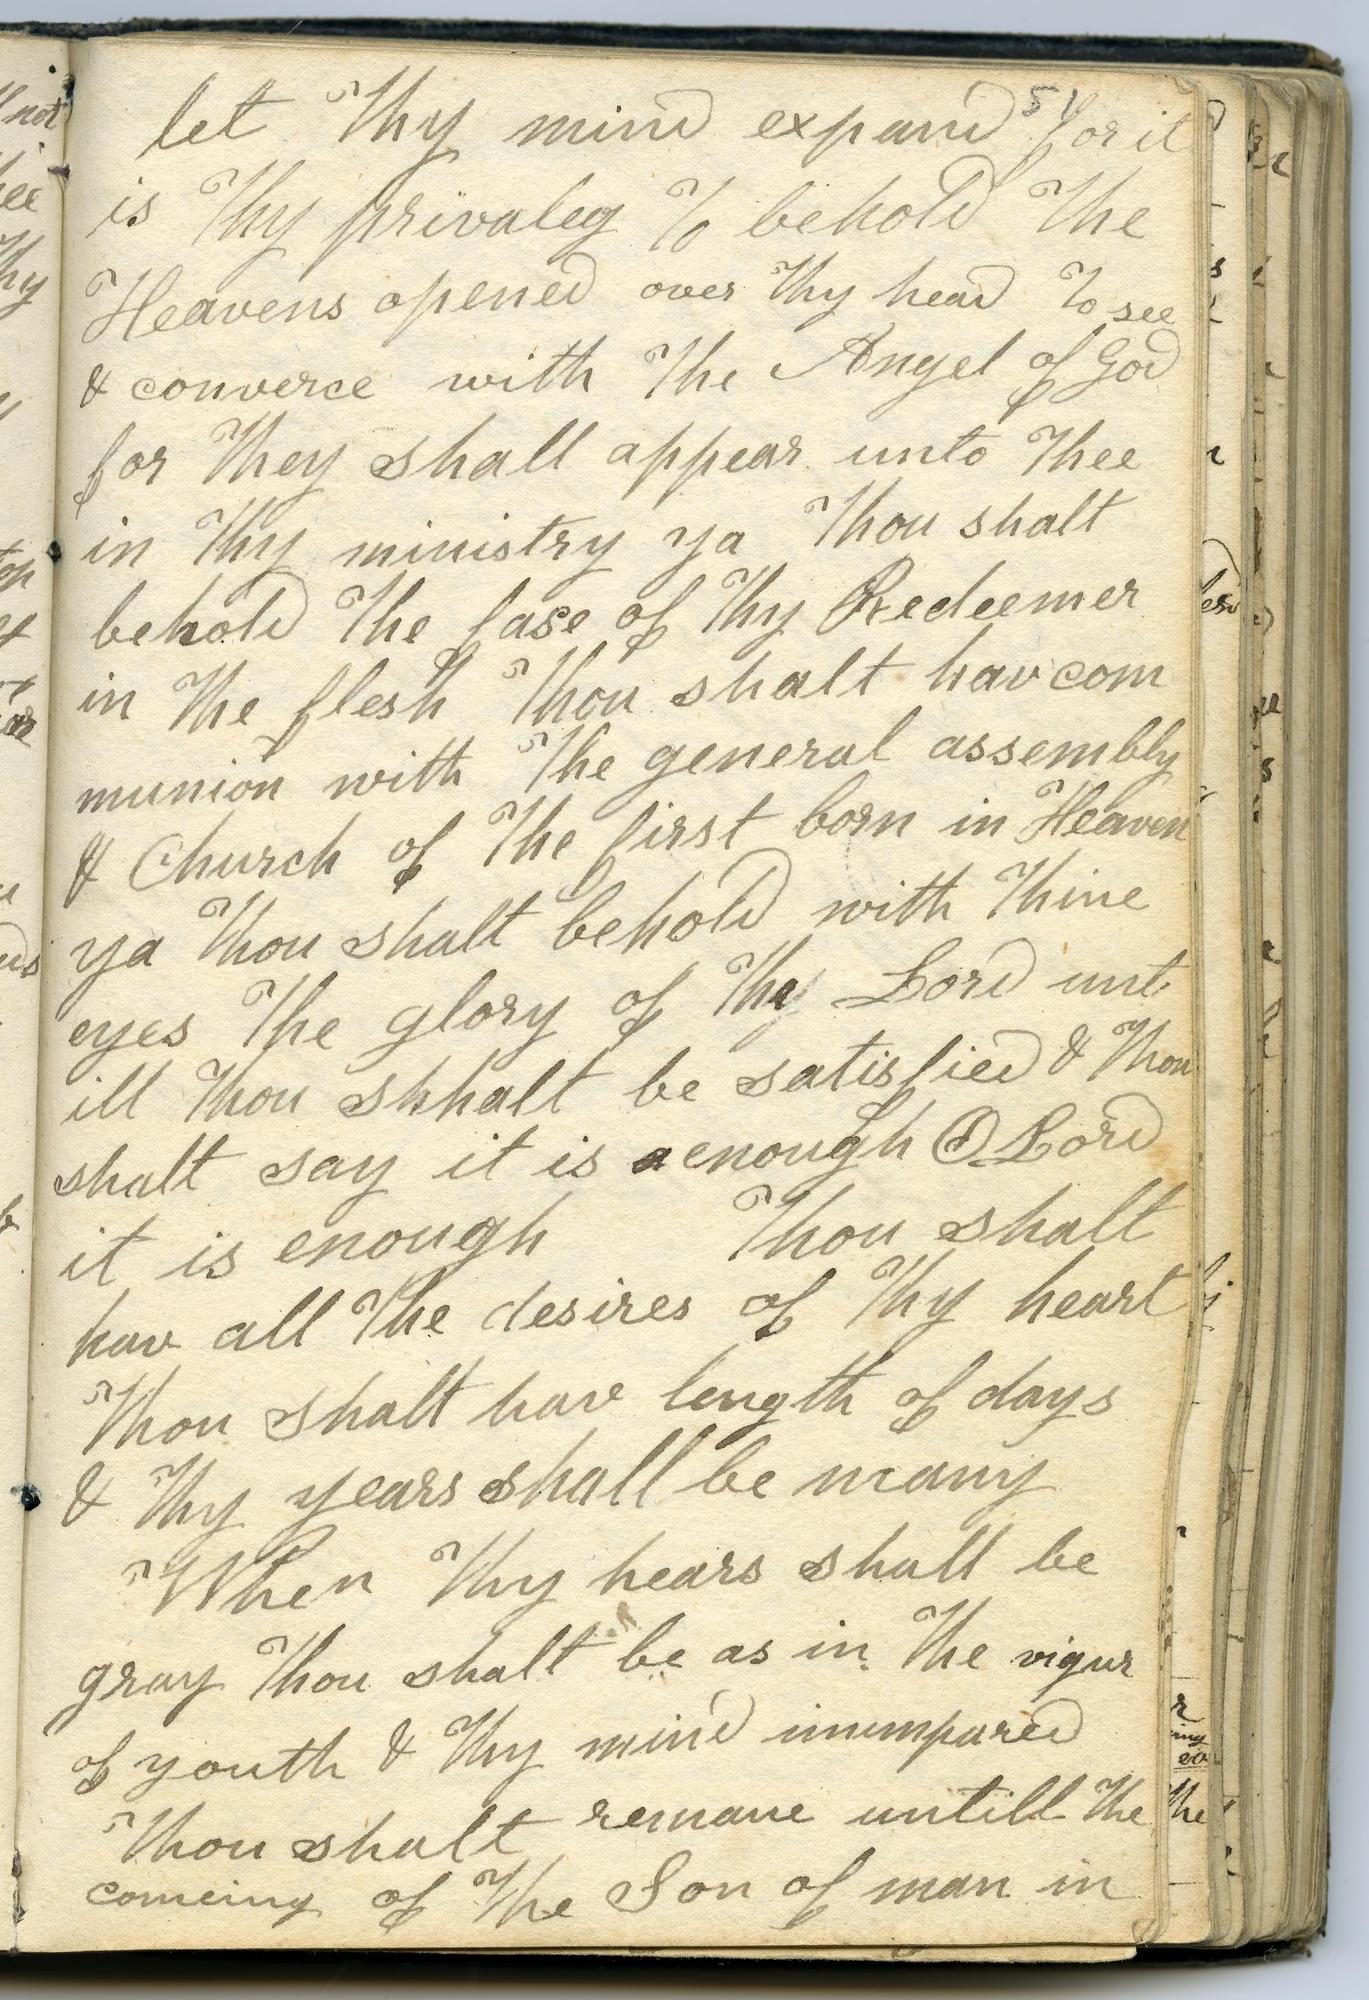 51
let Thy mind expand for it
is Thy privaleg To behold The
Heavens opened over Thy head To see
& converce with The Angel of God
for They shall appear unto Thee
in Thy ministry ya Thou shalt
behold The fase of Thy Redeemer
in The flesh Thou shalt hav com
munion with The general assembly
& Church of The first born in Heaven
ya Thou shalt behold with Thine
eyes The glory of Thy Lord unt
ill Thou shhalt be satisfied & Thou
shalt say it is enough O Lord
it is enough Thou shalt
hav all The desires of Thy heart
Thou shalt hav length of days
& Thy years shall be many
When Thy hears shall be
gray Thou shalt be as in The vigur
of youth & Thy mind inumpared
Thou shalt remane untill The
comeing of The Son of man in